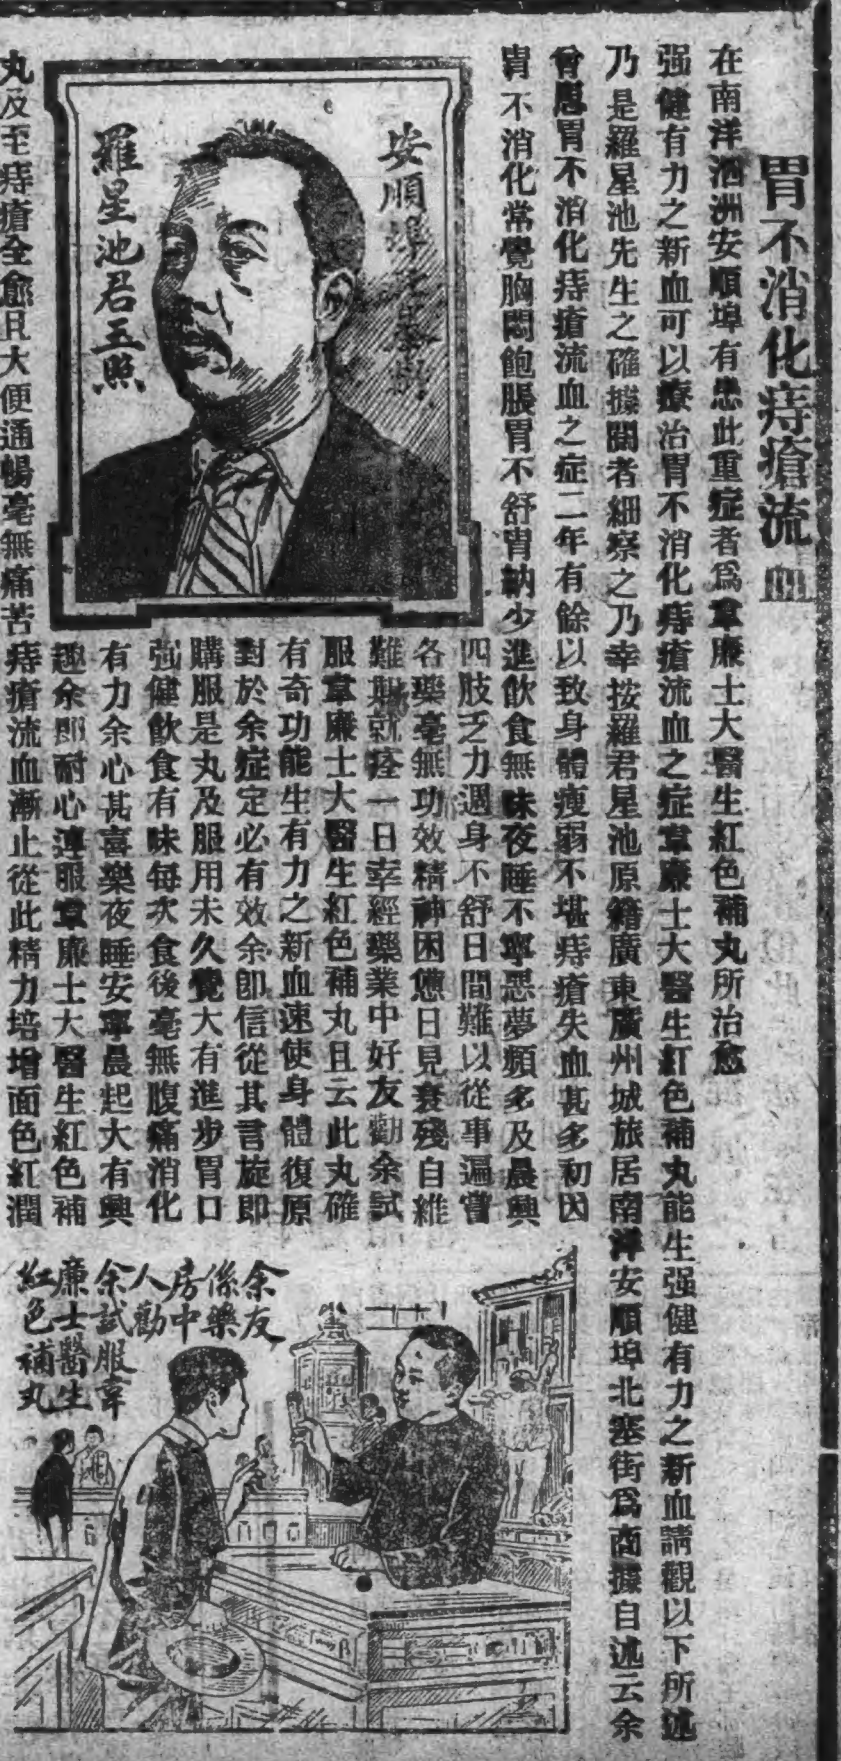 胃不消化痔瘡流血
在南洋泗洲安順埠有患此重症者爲韋廉士大醫生紅色補丸所治愈
强健有力之新血可以療治胃不消化痔瘡流血之症韋廉士大醫生紅色補丸能生强健有力之新血請觀以下所述
乃是羅星池先生之確據閱者細察之乃幸按羅君星池原籍廣東廣州城旅居南洋安順埠北塞街爲商據自述云余
曾患胃不消化痔瘡流血之症二年有餘以致身體瘦弱不堪痔瘡失血甚多初因
胃不消化常覺胸悶飽脹胃不舒胃納少進飲食無味夜睡不寧惡夢頻多及晨興
四肢乏力週身不舒日間難以從事遍嘗
各藥毫無功效精神困憊日見衰殘自維
難期就痊一日幸經藥業中好友勸余試
服韋廉士大醫生紅色補丸且云此丸確
有奇功能生有力之新血速使身體復原
對於余症定必有效余卽信從其言旋卽
購服是丸及服用未久覺大有進步胃口
强健飲食有味每次食後毫無腹痛消化
有力余心甚喜樂夜睡安寧晨起大有興
趣余卽耐心連服韋廉士大醫生紅色補
丸及至痔瘡全愈且大便通暢毫無痛苦痔瘡流血漸止從此精力培增面色紅潤
安順埠
羅星池君玉照
余友
係藥
房中
人勸
余試服韋
廉士醫生
紅色補丸